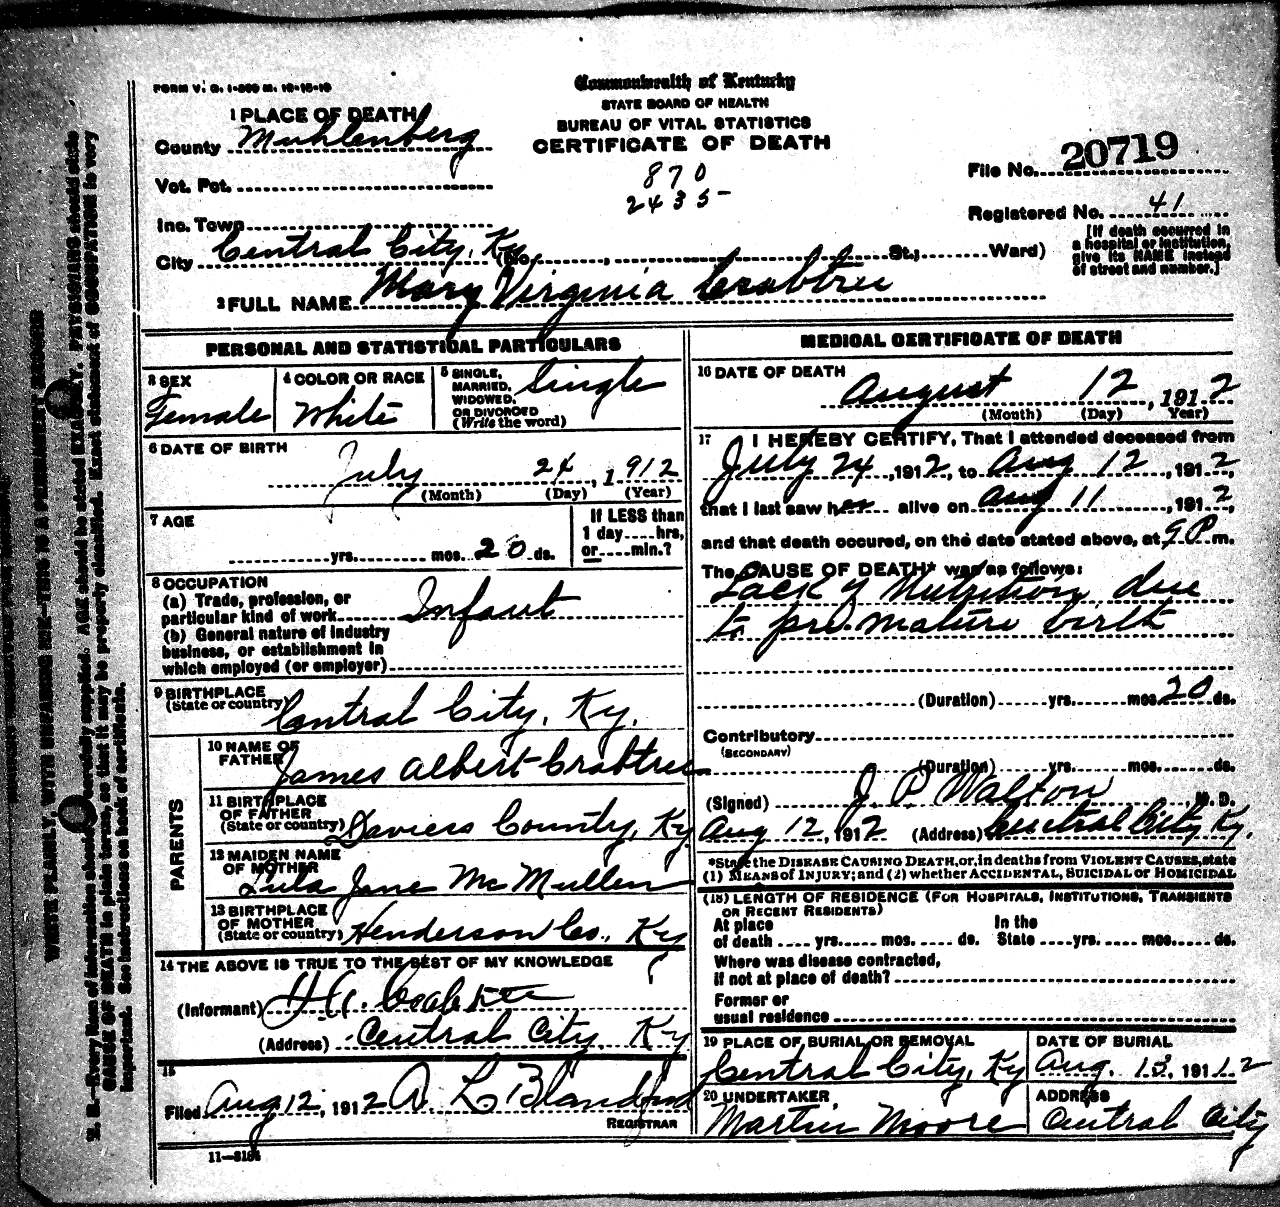 FORM V. S. 1-
Commonwealth of Kentucky
STATE BOARD OF HEALTH
BUREAU OF VITAL STATISTICS
CERTIFICATE OF DEATH
1 PLACE OF DEATH
County Muhlenberg
Vot. Pct.
Inc. Town
City Central City, Ky (No. , St.; Ward)
870
2435
File No. 20719
Registered No. 41
[If death occurred in
a hospital or institution,
give its NAME instead
of street and number.]
2 FULL NAME Mary Virginia Crabtree
PERSONAL AND STATISTICAL PARTICULARS
3 SEX
Female
4 COLOR OR RACE
White
5 SINGLE,
MARRIED,
WIDOWED,
OR DIVORCED
(Write the word)
Single
6 DATE OF BIRTH
July 24, 1912
(Month) (Day) (Year)
7 AGE
yrs. mos. 20 ds.
If LESS than
1 day....hrs,
or....min.?
8 OCCUPATION
(a) Trade, profession, or
particular kind of work Infant
(b) General nature of industry
business, or establishment in
which employed (or employer)
9 BIRTHPLACE
(State or country)
Central City, Ky.
PARENTS
10 NAME OF
FATHER
James Albert Crabtree
11 BIRTHPLACE
OF FATHER
(State or country) Daviess County, Ky
12 MAIDEN NAME
OF MOTHER
Lula Jane McMullen
13 BIRTHPLACE
OF MOTHER
(State or country) Henderson Co., Ky
14 THE ABOVE IS TRUE TO THE BEST OF MY KNOWLEDGE
(Informant) Crabtree
(Address) Central City Ky
15
Filed Aug 12, 1912 A. L. Blandford
REGISTRAR
MEDICAL CERTIFICATE OF DEATH
16 DATE OF DEATH
August 12, 1912
(Month) (Day) (Year)
17 I HEREBY CERTIFY, That I attended deceased from
July 24, 1912, to Aug 12, 1912,
that I last saw her alive on Aug 11, 1912,
and that death occured, on the date stated above, at 9 P. m.
The CAUSE OF DEATH* was as follows:
Lack of Nutrition due
to pre mature birth
(Duration) yrs. mos. 20 ds.
Contributory
(SECONDARY)
(Duration) yrs. mos. ds.
(Signed) J. P. Walton, M. D.
Aug 12, 1912 (Address) Central City Ky.
*State the DISEASE CAUSING DEATH, or, in deaths from VIOLENT CAUSES, state
(1) MEANS of INJURY; and (2) whether ACCIDENTAL, SUICIDAL or HOMICIDAL
(18) LENGTH OF RESIDENCE (FOR HOSPITALS, INSTITUTIONS, TRANSIENTS
OR RECENT RESIDENTS)
At place In the
of death .... yrs. .... mos. .... ds. State .... yrs. .... mos. .... ds.
Where was disease contracted,
if not at place of death?
Former or
usual residence
19 PLACE OF BURIAL OR REMOVAL
Central City, Ky
DATE OF BURIAL
Aug. 13, 1912
20 UNDERTAKER
Martin Moore
ADDRESS
Central City
WRITE PLAINLY, WITH UNFADING INK—THIS IS A PERMANENT RECORD
N. B.—Every item of information should be carefully supplied. AGE should be stated EXACTLY. PHYSICIANS should state
CAUSE OF DEATH in plain terms, so that it may be properly classified. Exact statement of OCCUPATION is very
important. See instructions on back of certificate.